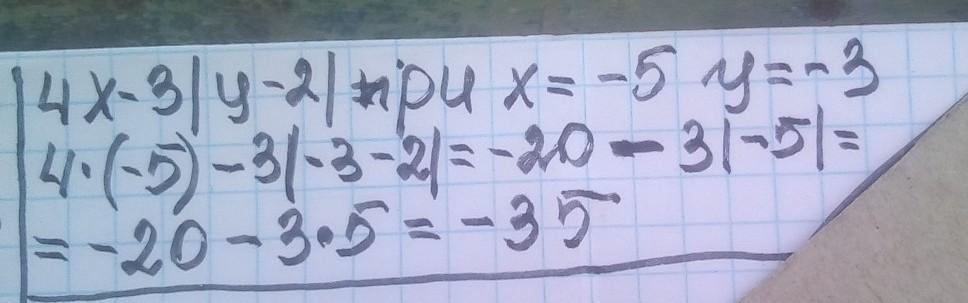 4x-3|y-2| при x=-5 y=-3
4·(-5)-3|-3-2|=-20-3|-5|=
=-20-3·5=-35